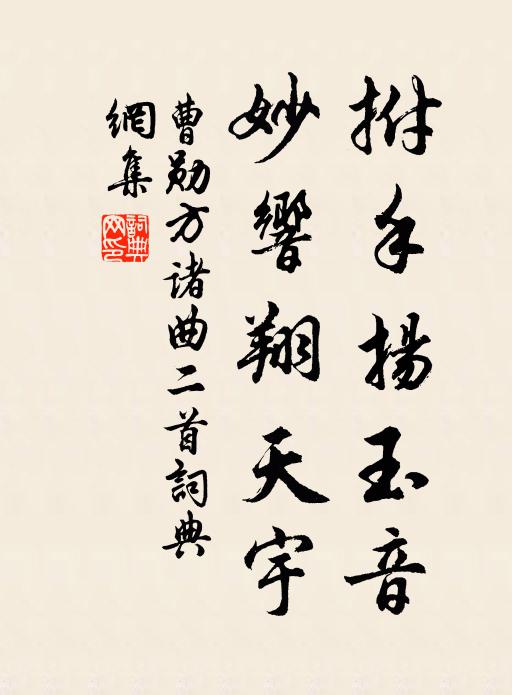 拊手揚玉音
妙響翔天宇
曹勛方诸曲二首詞典
網集
詞典
网印